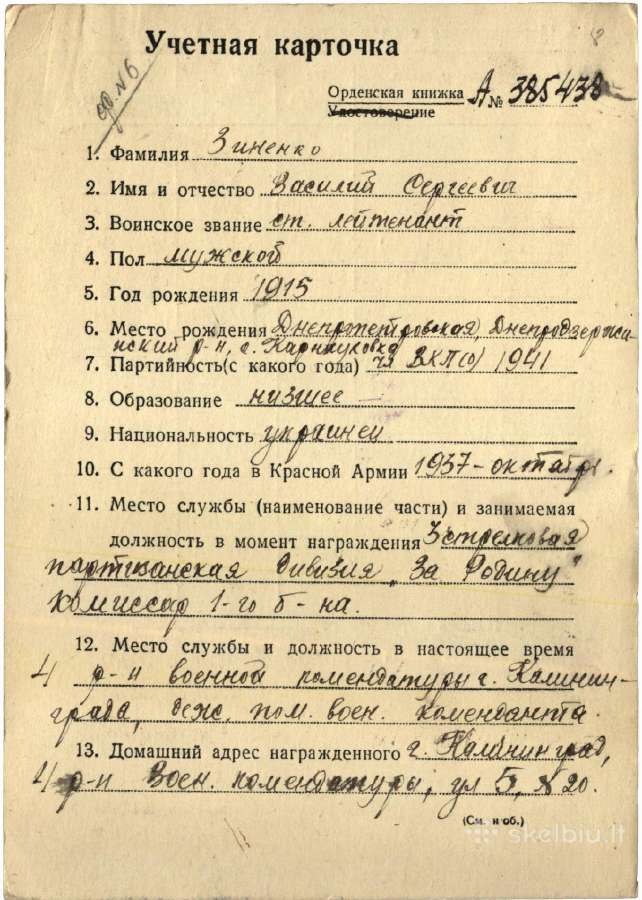 Учетная карточка
Орденская книжка А № 385438
Удостоверение
1. Фамилия Зиненко
2. Имя и отчество Василий Сергеевич
3. Воинское звание ст. лейтенант
4. Пол мужской
5. Год рождения 1915
6. Место рождения Днепропетровская, Днепродзержи-
нский р-н, с. Карнауховка
7. Партийность (с какого года) ВКП(б) 1941
8. Образование низшее
9. Национальность украинец
10. С какого года в Красной Армии 1937 - октябрь.
11. Место службы (наименование части) и занимаемая
должность в момент награждения 3 стрелковая
партизанская дивизия „За Родину"
комиссар 1-го б-на.
12. Место службы и должность в настоящее время
4 р-н военной комендатуры г. Калинин-
града, деж. пом. воен. коменданта.
13. Домашний адрес награжденного г. Калининград,
4 р-н воен. комендатуры, ул 5, № 20.
(См. н об.)
skelbiu.lt